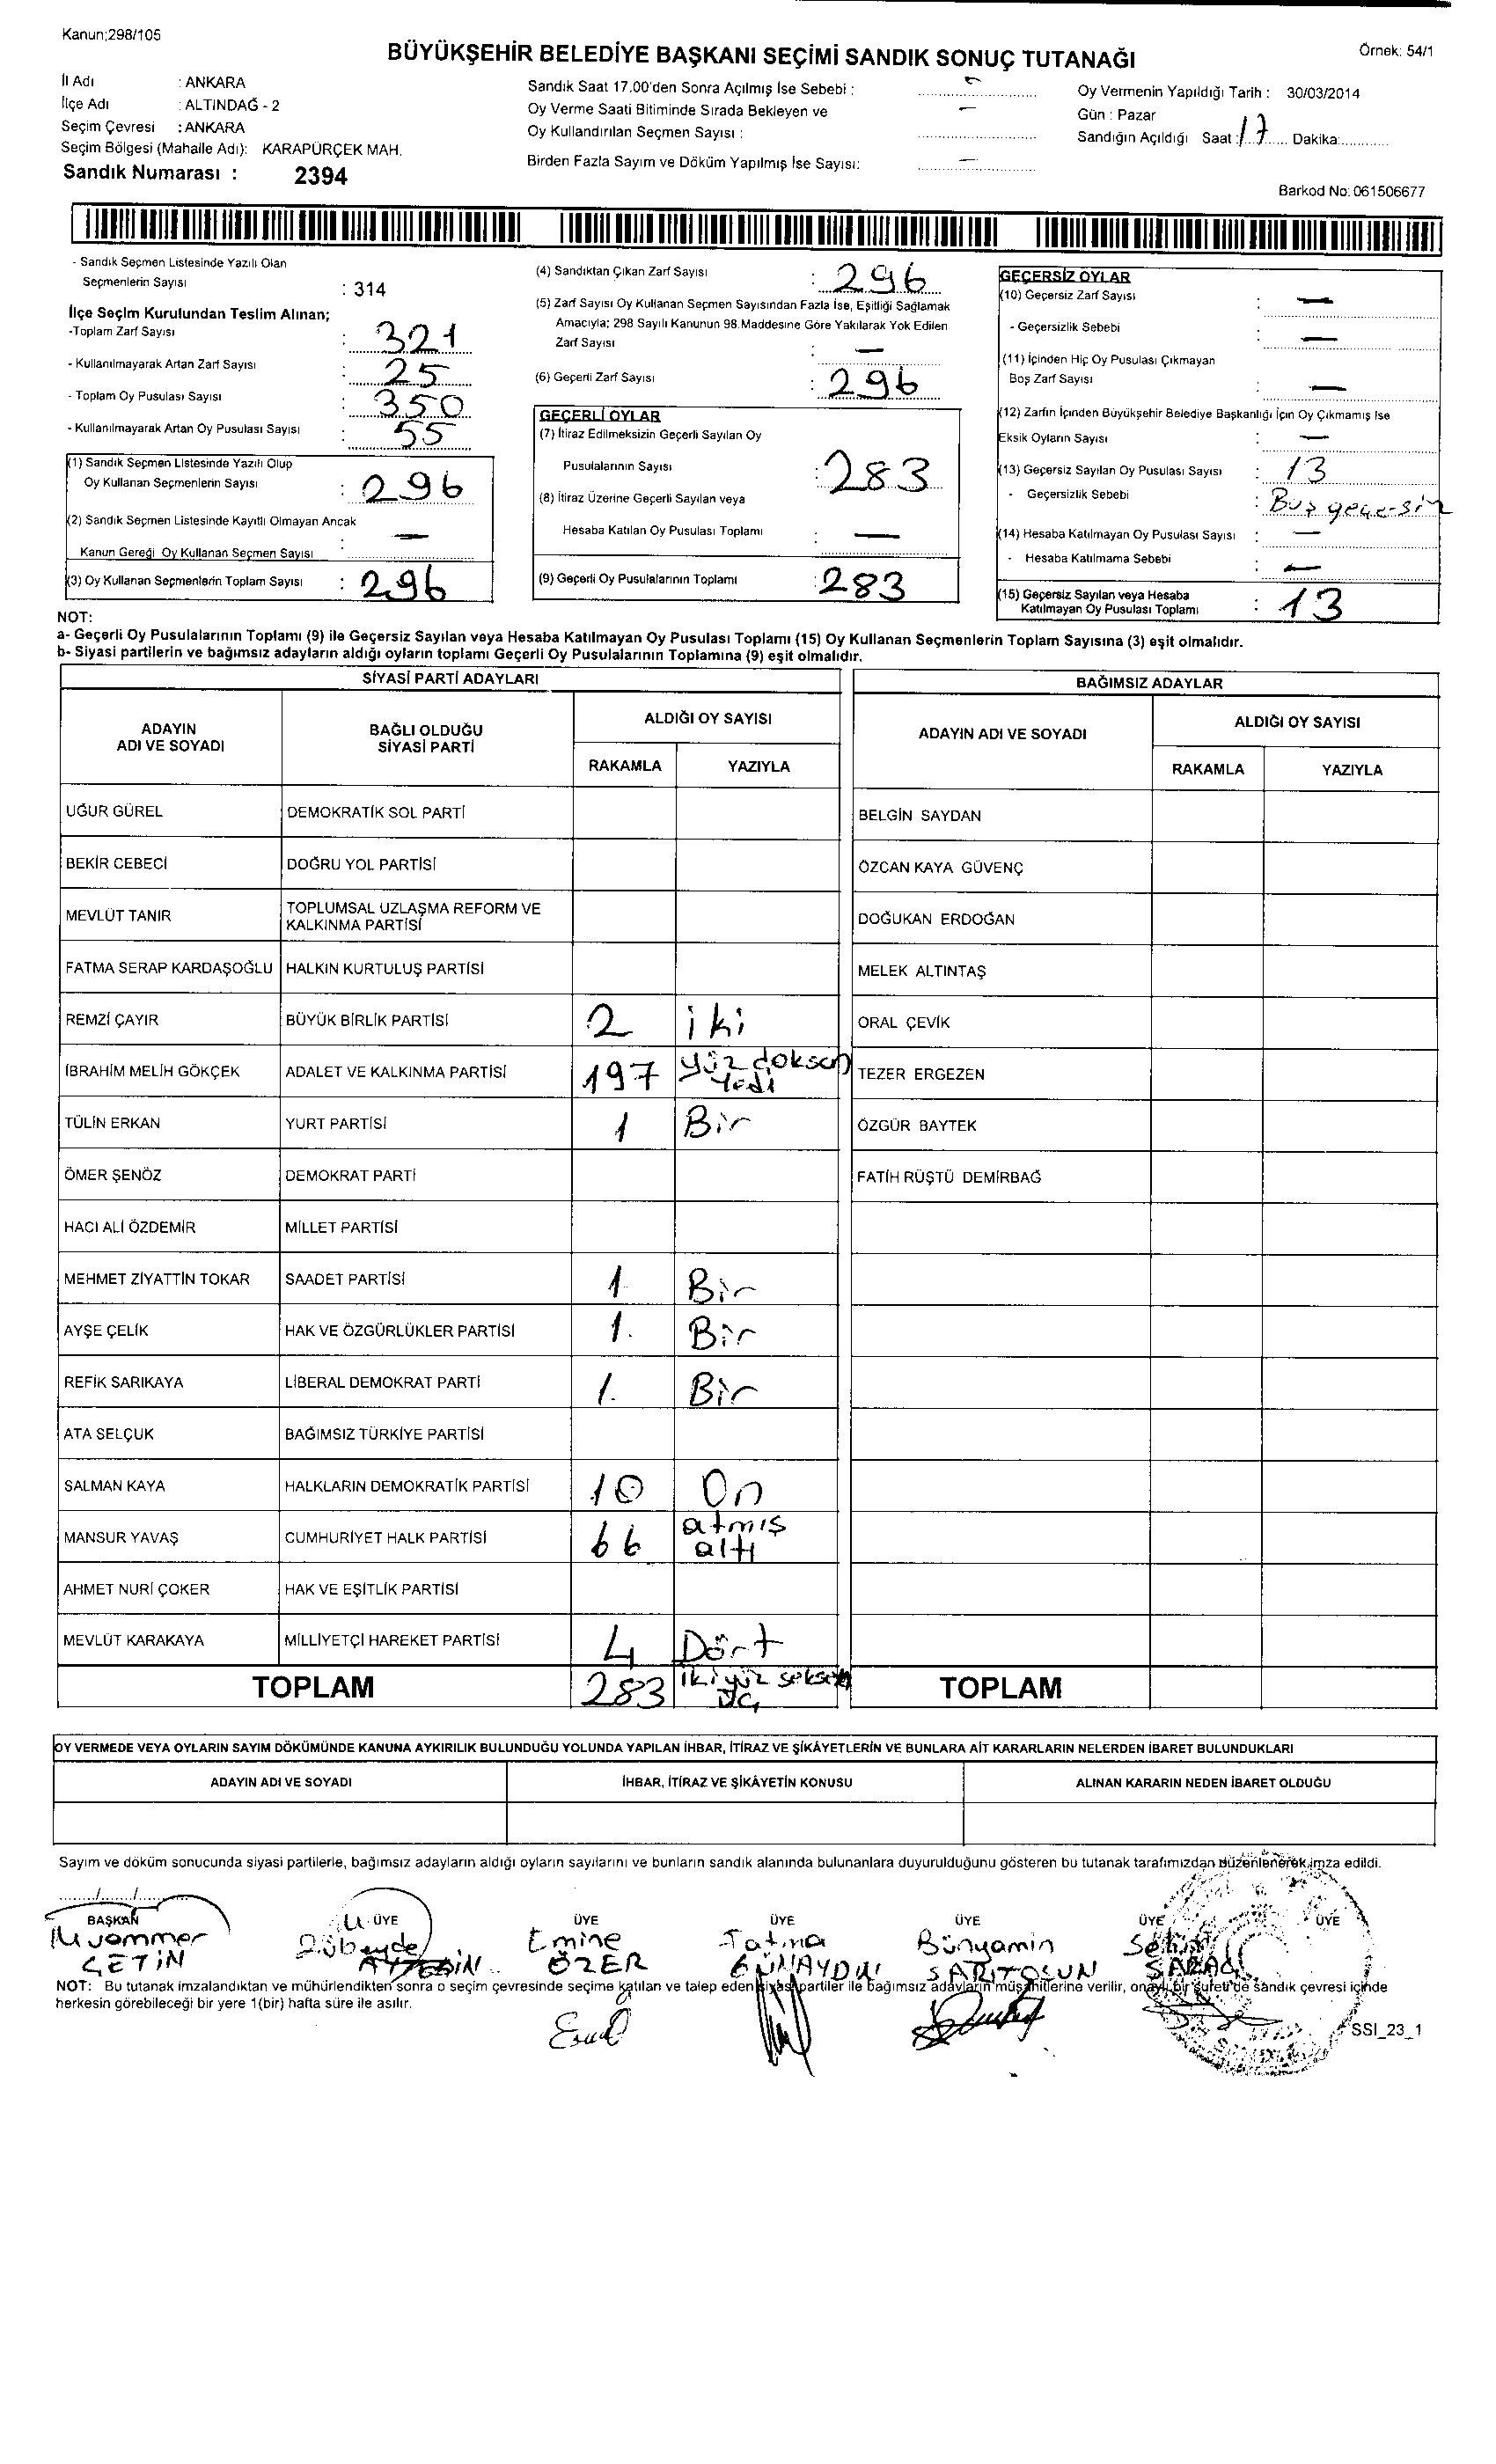 Kanun;298/105
BÜYÜKŞEHİR BELEDİYE BAŞKANI SEÇİMİ SANDIK SONUÇ TUTANAĞI
Örnek: 54/1
İl Adı : ANKARA
İlçe Adı : ALTINDAĞ - 2
Seçim Çevresi : ANKARA
Seçim Bölgesi (Mahalle Adı): KARAPÜRÇEK MAH.
Sandık Numarası : 2394
Sandık Saat 17.00'den Sonra Açılmış İse Sebebi : –
Oy Verme Saati Bitiminde Sırada Bekleyen ve
Oy Kullandırılan Seçmen Sayısı : –
Birden Fazla Sayım ve Döküm Yapılmış İse Sayısı: –
Oy Vermenin Yapıldığı Tarih : 30/03/2014
Gün : Pazar
Sandığın Açıldığı Saat : 17 Dakika:
Barkod No: 061506677
- Sandık Seçmen Listesinde Yazılı Olan
Seçmenlerin Sayısı : 314
İlçe Seçim Kurulundan Teslim Alınan;
-Toplam Zarf Sayısı : 321
- Kullanılmayarak Artan Zarf Sayısı : 25
- Toplam Oy Pusulası Sayısı : 350
- Kullanılmayarak Artan Oy Pusulası Sayısı : 55
(1) Sandık Seçmen Listesinde Yazılı Olup
Oy Kullanan Seçmenlerin Sayısı : 296
(2) Sandık Seçmen Listesinde Kayıtlı Olmayan Ancak
Kanun Gereği Oy Kullanan Seçmen Sayısı : –
(3) Oy Kullanan Seçmenlerin Toplam Sayısı : 296
(4) Sandıktan Çıkan Zarf Sayısı : 296
(5) Zarf Sayısı Oy Kullanan Seçmen Sayısından Fazla İse, Eşitliği Sağlamak
Amacıyla; 298 Sayılı Kanunun 98.Maddesine Göre Yakılarak Yok Edilen
Zarf Sayısı : –
(6) Geçerli Zarf Sayısı : 296
GEÇERLİ OYLAR
(7) İtiraz Edilmeksizin Geçerli Sayılan Oy
Pusulalarının Sayısı : 283
(8) İtiraz Üzerine Geçerli Sayılan veya
Hesaba Katılan Oy Pusulası Toplamı : –
(9) Geçerli Oy Pusulalarının Toplamı : 283
GEÇERSİZ OYLAR
(10) Geçersiz Zarf Sayısı : –
- Geçersizlik Sebebi : –
(11) İçinden Hiç Oy Pusulası Çıkmayan
Boş Zarf Sayısı : –
(12) Zarfın İçinden Büyükşehir Belediye Başkanlığı İçin Oy Çıkmamış İse
Eksik Oyların Sayısı : –
(13) Geçersiz Sayılan Oy Pusulası Sayısı : 13
- Geçersizlik Sebebi :
(14) Hesaba Katılmayan Oy Pusulası Sayısı : –
- Hesaba Katılmama Sebebi : –
(15) Geçersiz Sayılan veya Hesaba
Katılmayan Oy Pusulası Toplamı : 13
NOT:
a- Geçerli Oy Pusulalarının Toplamı (9) ile Geçersiz Sayılan veya Hesaba Katılmayan Oy Pusulası Toplamı (15) Oy Kullanan Seçmenlerin Toplam Sayısına (3) eşit olmalıdır.
b- Siyasi partilerin ve bağımsız adayların aldığı oyların toplamı Geçerli Oy Pusulalarının Toplamına (9) eşit olmalıdır.
SİYASİ PARTİ ADAYLARI
ADAYIN ADI VE SOYADI
BAĞLI OLDUĞU SİYASİ PARTİ
ALDIĞI OY SAYISI
RAKAMLA YAZIYLA
UĞUR GÜREL DEMOKRATİK SOL PARTİ
BEKİR CEBECİ DOĞRU YOL PARTİSİ
MEVLÜT TANIR TOPLUMSAL UZLAŞMA REFORM VE KALKINMA PARTİSİ
FATMA SERAP KARDAŞOĞLU HALKIN KURTULUŞ PARTİSİ
REMZİ ÇAYIR BÜYÜK BİRLİK PARTİSİ 2 iki
İBRAHİM MELİH GÖKÇEK ADALET VE KALKINMA PARTİSİ 197 yüz doksan Yedi
TÜLİN ERKAN YURT PARTİSİ 1 Bir
ÖMER ŞENÖZ DEMOKRAT PARTİ
HACI ALİ ÖZDEMİR MİLLET PARTİSİ
MEHMET ZİYATTİN TOKAR SAADET PARTİSİ 1 Bir
AYŞE ÇELİK HAK VE ÖZGÜRLÜKLER PARTİSİ 1. Bir
REFİK SARIKAYA LİBERAL DEMOKRAT PARTİ 1. Bir
ATA SELÇUK BAĞIMSIZ TÜRKİYE PARTİSİ
SALMAN KAYA HALKLARIN DEMOKRATİK PARTİSİ 10 On
MANSUR YAVAŞ CUMHURİYET HALK PARTİSİ 66 atmış altı
AHMET NURİ ÇOKER HAK VE EŞİTLİK PARTİSİ
MEVLÜT KARAKAYA MİLLİYETÇİ HAREKET PARTİSİ 4 Dört
TOPLAM 283 ikiyüz seksen üç
BAĞIMSIZ ADAYLAR
ADAYIN ADI VE SOYADI
ALDIĞI OY SAYISI
RAKAMLA YAZIYLA
BELGİN SAYDAN
ÖZCAN KAYA GÜVENÇ
DOĞUKAN ERDOĞAN
MELEK ALTINTAŞ
ORAL ÇEVİK
TEZER ERGEZEN
ÖZGÜR BAYTEK
FATİH RÜŞTÜ DEMİRBAĞ
TOPLAM
OY VERMEDE VEYA OYLARIN SAYIM DÖKÜMÜNDE KANUNA AYKIRILIK BULUNDUĞU YOLUNDA YAPILAN İHBAR, İTİRAZ VE ŞİKÂYETLERİN VE BUNLARA AİT KARARLARIN NELERDEN İBARET BULUNDUKLARI
ADAYIN ADI VE SOYADI İHBAR, İTİRAZ VE ŞİKÂYETİN KONUSU ALINAN KARARIN NEDEN İBARET OLDUĞU
Sayım ve döküm sonucunda siyasi partilerle, bağımsız adayların aldığı oyların sayılarını ve bunların sandık alanında bulunanlara duyurulduğunu gösteren bu tutanak tarafımızdan düzenlenerek imza edildi.
BAŞKAN ÜYE ÜYE ÜYE ÜYE ÜYE ÜYE
Muammer Zübeyde Emine Fatma Bünyamin
ÇETİN ÖZER GÜNAYDIN SARITOSUN
NOT: Bu tutanak imzalandıktan ve mühürlendikten sonra o seçim çevresinde seçime katılan ve talep eden siyasi partiler ile bağımsız adayların müşahitlerine verilir, onaylı bir sureti de sandık çevresi içinde
herkesin görebileceği bir yere 1(bir) hafta süre ile asılır.
SSI_23_1